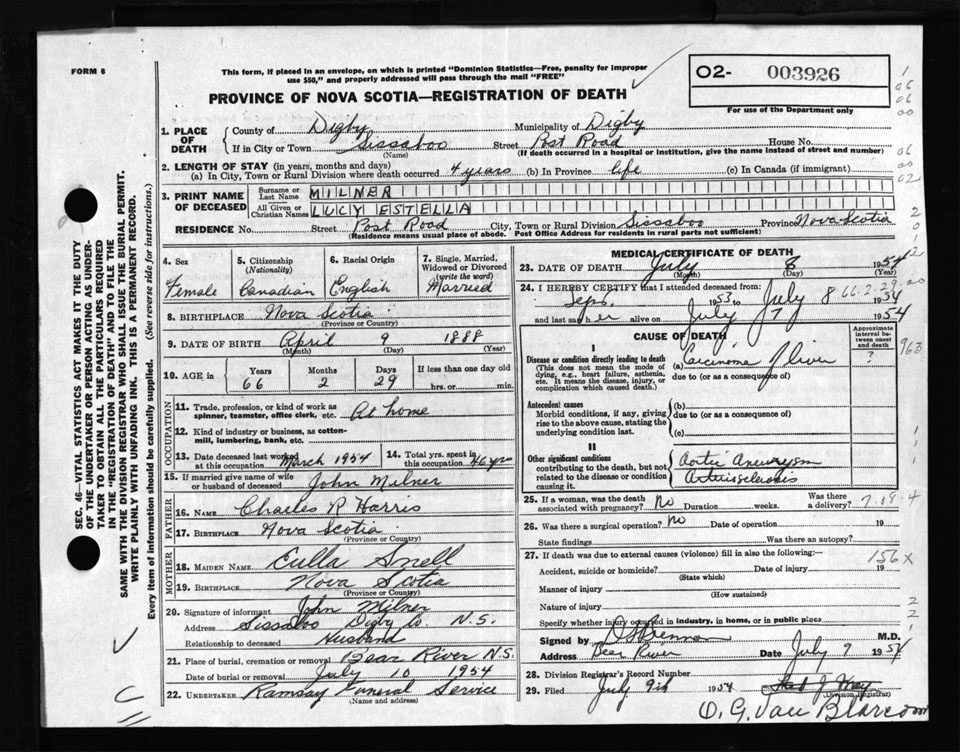 FORM 6
This form, if placed in an envelope, on which is printed "Dominion Statistics—Free, penalty for improper
use $50," and properly addressed will pass through the mail "FREE"
O2- 003926
For use of the Department only
PROVINCE OF NOVA SCOTIA—REGISTRATION OF DEATH
1. PLACE OF DEATH County of Digby Municipality of Digby
If in City or Town Sissaboo Street Post Road House No.
(Name) (If death occurred in a hospital or institution, give the name instead of street and number)
2. LENGTH OF STAY (in years, months and days)
(a) In City, Town or Rural Division where death occurred 4 years (b) In Province life (c) In Canada (if immigrant)
3. PRINT NAME OF DECEASED Surname or Last Name MILNER
All Given or Christian Names LUCY ESTELLA
RESIDENCE No. Street Post Road City, Town or Rural Division Sissaboo Province Nova Scotia
(Residence means usual place of abode. Post Office Address for residents in rural parts not sufficient)
4. Sex Female
5. Citizenship (Nationality) Canadian
6. Racial Origin English
7. Single, Married, Widowed or Divorced (write the word) Married
8. BIRTHPLACE Nova Scotia
(Province or Country)
9. DATE OF BIRTH April 9 1888
(Month) (Day) (Year)
10. AGE in Years 66 Months 2 Days 29 If less than one day old hrs. or min.
OCCUPATION
11. Trade, profession, or kind of work as spinner, teamster, office clerk, etc. At home
12. Kind of industry or business, as cotton-mill, lumbering, bank, etc.
13. Date deceased last worked at this occupation March 1954
14. Total yrs. spent in this occupation 46 yrs
15. If married give name of wife or husband of deceased John Milner
FATHER
16. NAME Charles R Harris
17. BIRTHPLACE Nova Scotia
(Province or Country)
MOTHER
18. MAIDEN NAME Eulla Snell
19. BIRTHPLACE Nova Scotia
(Province or Country)
20. Signature of informant John Milner
Address Sissaboo Digby Co. N.S.
Relationship to deceased Husband
21. Place of burial, cremation or removal Bear River N.S.
Date of burial or removal July 10 1954
22. UNDERTAKER Ramsay Funeral Service
(Name and address)
MEDICAL CERTIFICATE OF DEATH
23. DATE OF DEATH July 8 1954
(Month) (Day) (Year)
24. I HEREBY CERTIFY that I attended deceased from:
Sept. 1953 to July 8 1954
66-2-29-00
and last saw her alive on July 7 1954
CAUSE OF DEATH
Approximate interval between onset and death
I
Disease or condition directly leading to death
(This does not mean the mode of dying, e.g., heart failure, asthenia, etc. It means the disease, injury, or complication which caused death.)
(a) Carcinoma of liver ?
due to (or as a consequence of)
Antecedent causes
Morbid conditions, if any, giving rise to the above cause, stating the underlying condition last.
(b)
due to (or as a consequence of)
(c)
II
Other significant conditions
contributing to the death, but not related to the disease or condition causing it.
Aortic Aneurysm
Arteriosclerosis
25. If a woman, was the death associated with pregnancy? No Duration weeks. Was there a delivery?
26. Was there a surgical operation? no Date of operation 19
State findings Was there an autopsy?
27. If death was due to external causes (violence) fill in also the following:—
156 X
Accident, suicide or homicide? Date of injury 19
(State which)
Manner of injury
(How sustained)
Nature of injury
Specify whether injury occurred in industry, in home, or in public place
Signed by M.D.
Address Bear River Date July 9 1954
28. Division Registrar's Record Number
29. Filed July 9th 1954
(Division Registrar)
O. G. Van Blarcom
SEC. 46—VITAL STATISTICS ACT MAKES IT THE DUTY
OF THE UNDERTAKER OR PERSON ACTING AS UNDER-
TAKER TO OBTAIN ALL THE PARTICULARS REQUIRED
IN THE "REGISTRATION OF DEATH" AND TO FILE THE
SAME WITH THE DIVISION REGISTRAR WHO SHALL ISSUE THE BURIAL PERMIT.
WRITE PLAINLY WITH UNFADING INK. THIS IS A PERMANENT RECORD.
Every item of information should be carefully supplied. (See reverse side for instructions.)